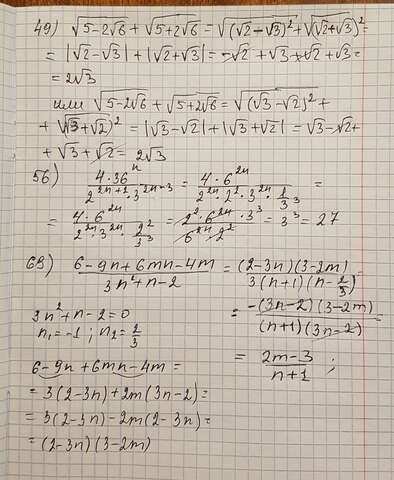 49) √(5-2√6) + √(5+2√6) = √((√2-√3)²) + √((√2+√3)²) =
= |√2-√3| + |√2+√3| = -√2 + √3 + √2 + √3 =
= 2√3
или √(5-2√6) + √(5+2√6) = √((√3-√2)²) +
+ √((√3+√2)²) = |√3-√2| + |√3+√2| = √3-√2+
+ √3 + √2 = 2√3
56) (4·36ⁿ)/(2²ⁿ⁺¹·3²ⁿ⁻³) = (4·6²ⁿ)/(2²ⁿ·2¹·3²ⁿ·1/3³) =
= (4·6²ⁿ)/(2²ⁿ·3²ⁿ·2²/3³) = (2²·6²ⁿ·3³)/(6²ⁿ·2²) = 3³ = 27
69) (6-9n+6mn-4m)/(3n²+n-2) = ((2-3n)(3-2m))/(3(n+1)(n-2/3)) =
3n²+n-2=0
n₁=-1; n₂=2/3
= (-(3n-2)(3-2m))/((n+1)(3n-2)) =
= (2m-3)/(n+1);
6-9n+6mn-4m =
= 3(2-3n)+2m(3n-2) =
= 3(2-3n)-2m(2-3n) =
= (2-3n)(3-2m)